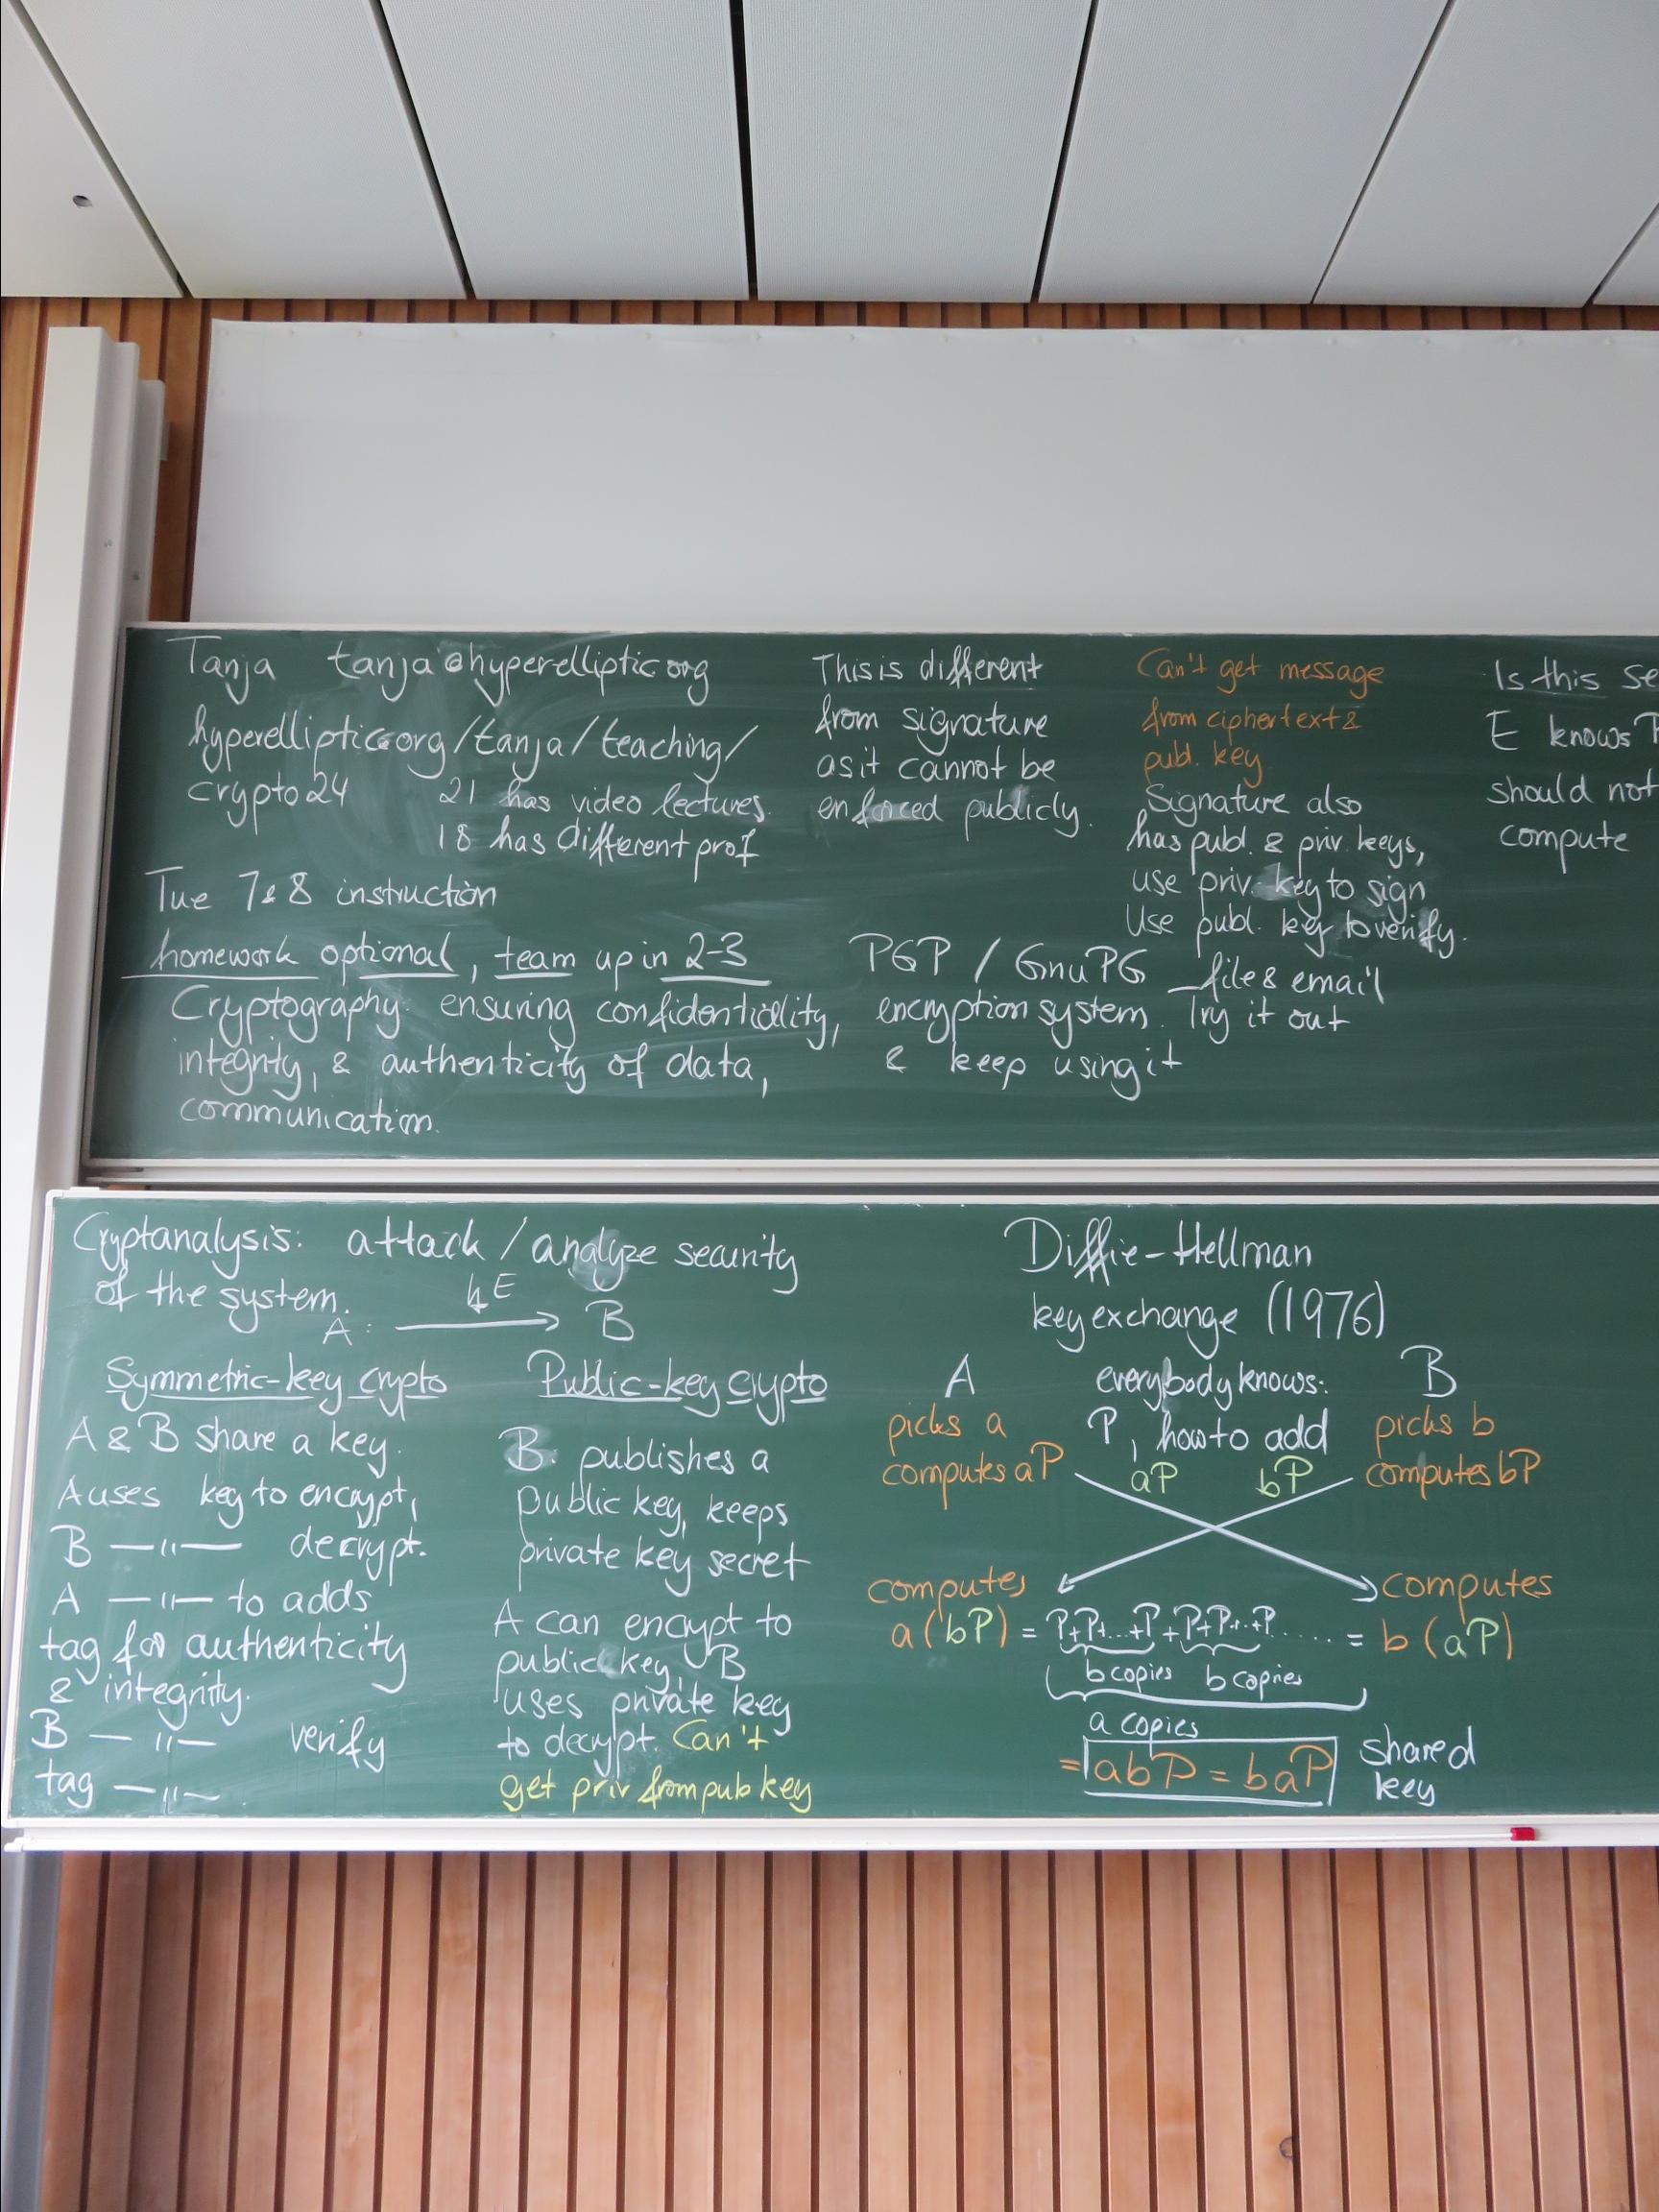 Tanja tanja@hyperelliptic.org
hyperelliptic.org/tanja/teaching/
crypto24 21 has video lectures.
18 has different prof
Tue 7&8 instruction
homework optional, team up in 2-3
Cryptography: ensuring confidentiality,
integrity, & authenticity of data,
communication.
This is different
from signature
as it cannot be
enforced publicly.
PGP / GnuPG – file & email
encryption system. Try it out
& keep using it
Can't get message
from ciphertext &
publ. key
Signature also
has publ. & priv. keys,
use priv. key to sign
Use publ. key to verify.
Is this se
E knows P
should not
compute
Cryptanalysis: attack / analyze security
of the system.
E
A: → B
Symmetric-key crypto
A & B share a key.
A uses key to encrypt,
B —"— decrypt.
A —"— to adds
tag for authenticity
& integrity.
B —"— verify
tag —"—
Public-key crypto
B: publishes a
public key, keeps
private key secret
A can encrypt to
public key, B
uses private key
to decrypt. Can't
get priv from pub key
Diffie-Hellman
key exchange (1976)
A everybody knows: B
picks a P, how to add picks b
computes aP aP bP computes bP
computes computes
a(bP) = P+P+...+P+P+P+..+P...... = b(aP)
b copies b copies
a copies
= abP = baP shared
key